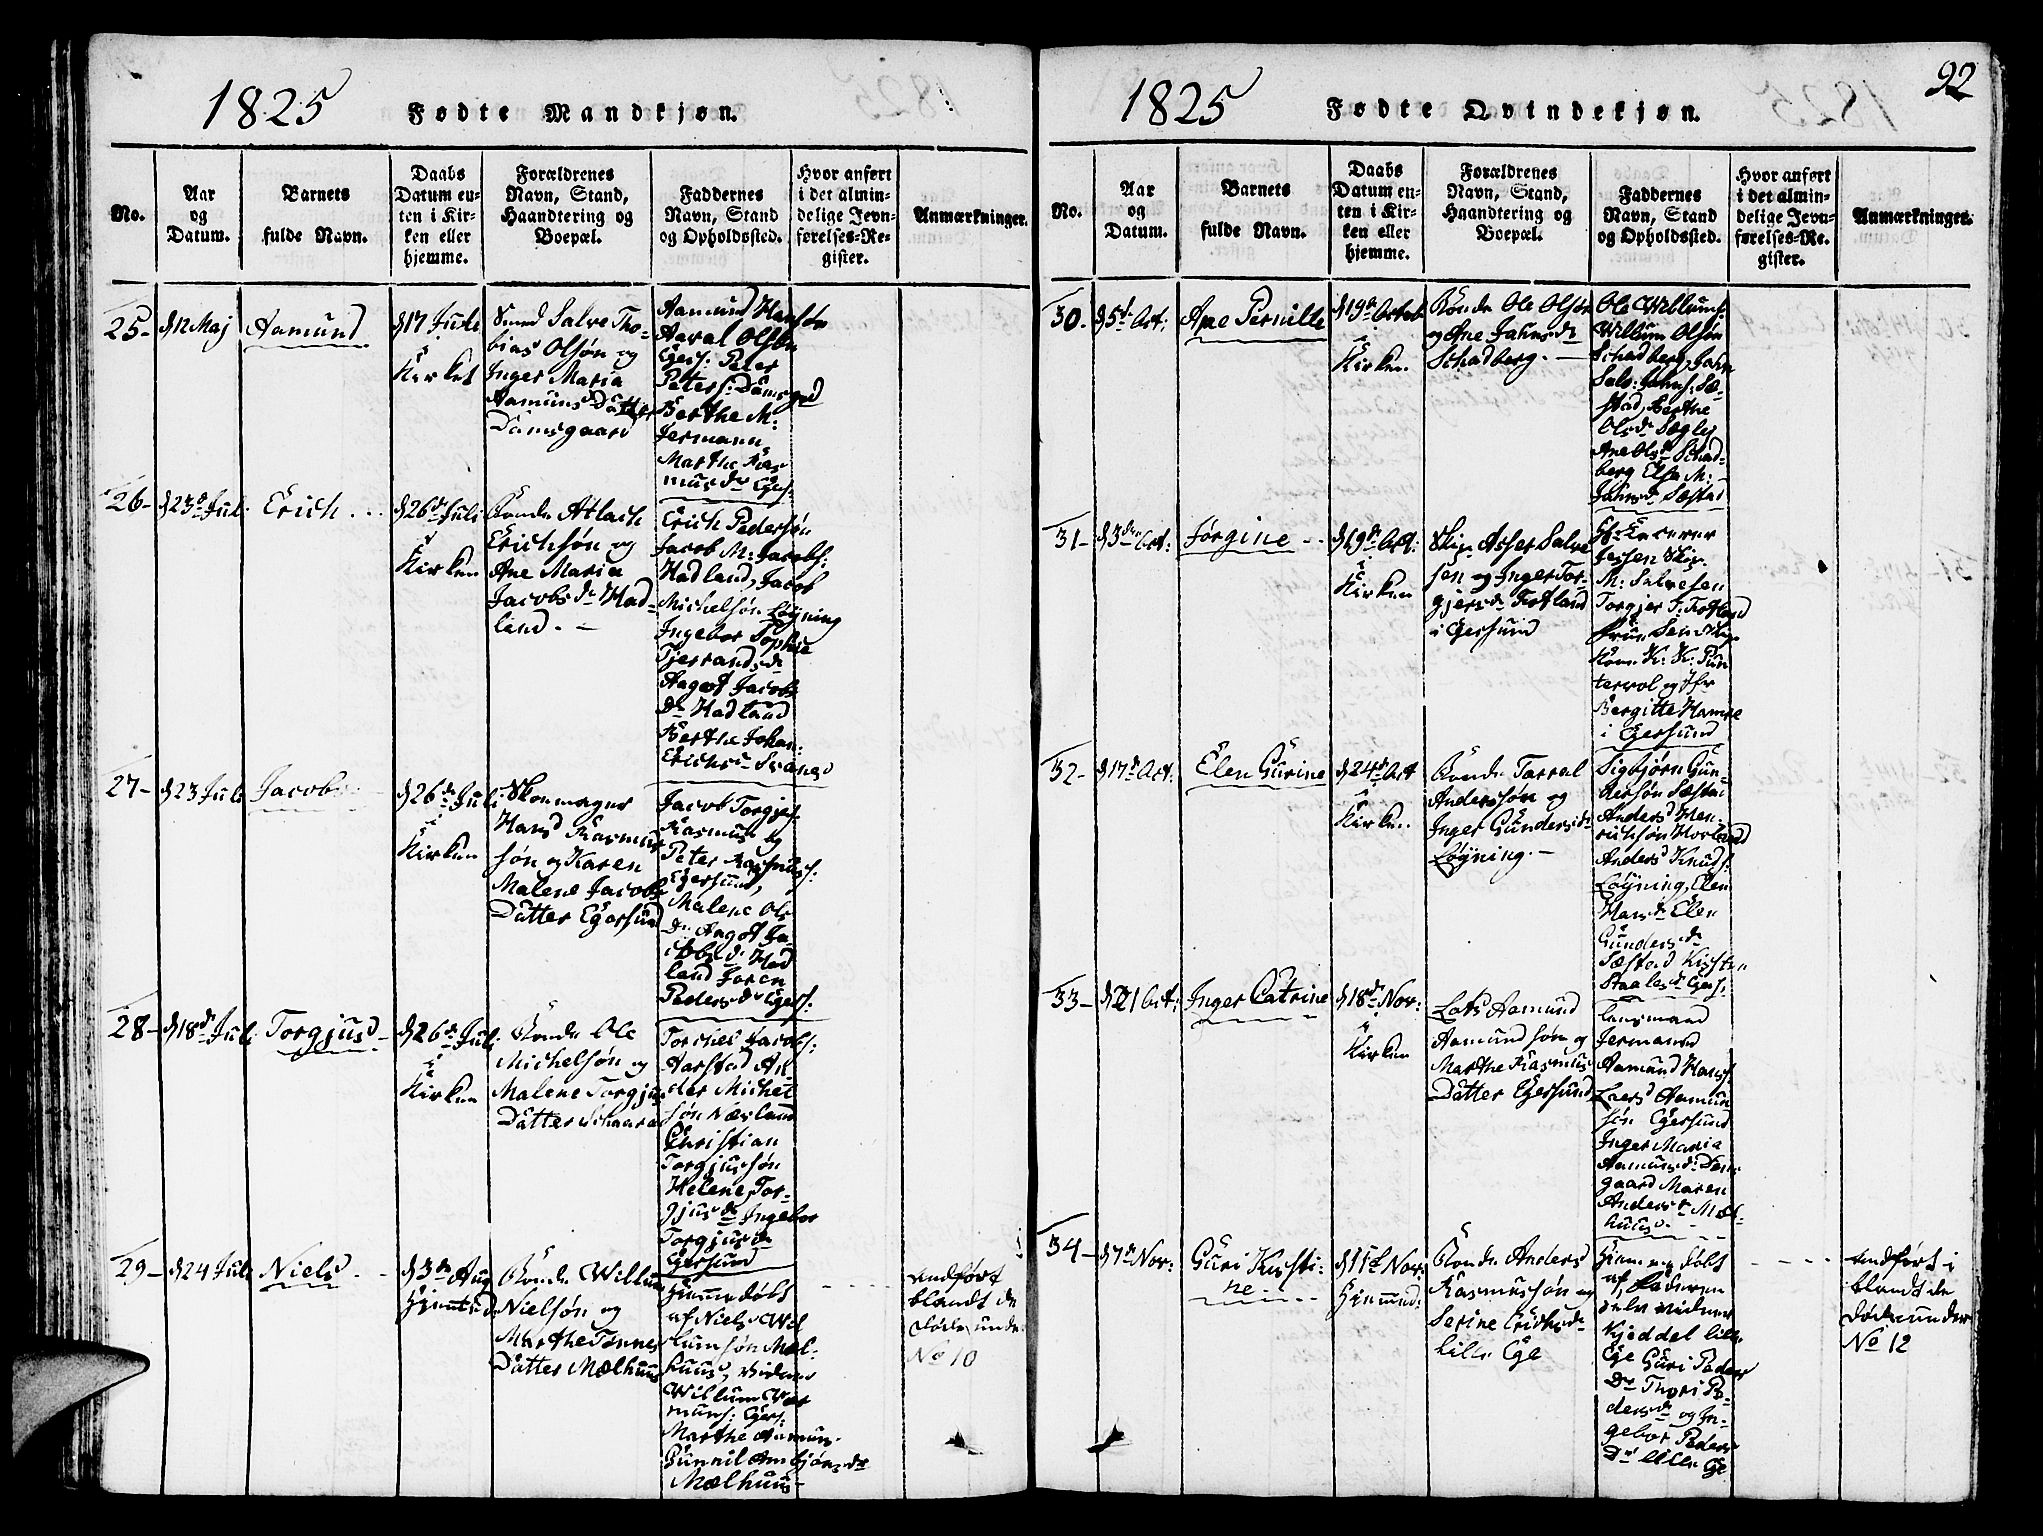 1825 Fødte Mandkjøn.
No.
Aar
og
Datum.
Barnets
fulde Navn.
Daabs
Datum en-
ten i Kir-
ken eller
hjemme.
Forældrenes
Navn, Stand,
Haandtering og
Boepæl.
Faddernes
Navn, Stand
og Opholdssted.
Hvor anført
i det almin-
delige Jevn-
førelses-Re-
gister.
Anmærkninger.
25-
d 12 Maj
Aamund
d 17 Juli
i
Kirken
Smed Salve Tho-
bias Olsøn og
Inger Maria
Aamunds Datter
Damsgaard
Aamund Hansøn
Aaval Olsøn
Egers: Peter
Peters: Damsgrd
Berthe M:
Jermann
Marthe Ras
musdr Egers:
26-
d 23de Juli
Erich
d 26de Juli
i
Kirken
Bonde Atlach
Erichsøn og
Ane Maria
Jacobsdr Had-
land. -
Erich Pedersøn
Jacob M: Jacobs:
Hadland, Jacob
Michelsøn Løyning
Ingebor Sophie
Tjerandsdr
Aagot Jacobs
Dr Hadland
Berthe Johan:
Erichsdr Svanes
27-
d 23 Juli
Jacob
d 26de Juli
i
Kirken
Skomager
Hans Rasmus
søn og Karen
Malene Jacobs
Datter Egersund
Jacob Torgjes:
Rasmus og
Peter Rasmus:
Egersund,
Malene Ols
dr Aagot Ja-
cobsdr Had
land Joren
Pedersdr Egers:
28-
d 18de Juli
Torgjus
d 26de Juli
i
Kirken
Bonde Ole
Michelsøn og
Malene Torgjus
Datter Schaara
Torchel Jacobs:
Aarstad An-
der Michel
søn Nævland
Christian
Torgjussøn
Helene Tor-
gjusdr Ingebor
Torgjusdr
Egersund
29-
d 24 Juli
Niels
d 3de Aug
Hjemmed
Bonde Willum
Nielsøn og
Marthe Tønnes
Datter Mælhuus
Hjemmedøbt
af Niels Wil
lumsøn Mæl-
huus, vidner
Willum Vær
mun: Egers:
Marthe Aamun-
Gunnil Ambjønsdr
Mælhuus
anført
blandt de
døde under
No 10
1825 Fødte Qvindekjøn.
92
No.
Aar
og
Datum.
Barnets
fulde Navn.
Daabs
Datum en-
ten i Kir-
ken eller
hjemme.
Forældrenes
Navn, Stand,
Haandtering og
Boepæl.
Faddernes
Navn, Stand
og Opholdssted.
Hvor anført
i det almin-
delige Jevn-
førelses-Re-
gister.
Anmærkninger.
30.
d 5te Oct:
Ane Pernille
d 19de Octob
i
Kirken.
Bonde Ole Olsøn
og Ane Jahnsdr
Schadberg. -
Ole Willums:
Willum Olsøn
Schadberg, Jahn
Salv: Jahns: Sæ-
stad, Berthe
Olsdr Søgley
Ane Olsdr Schad-
berg Elsa M:
Jahnsdr Sæstad
31-
d 3die Oct:
Jørgine
d 19de Oct:
i
Kirken
Skip: Asser Salve
sen og Inger Tor-
gjersdr Fotland
i Egersund
Jessen Skip.
M: Salvesen
Torgjer T: Fotland
Kone K: K: Pun
tervol og Jfr
Bergitte Hamre
i Egersund
32-
d 17de Oct:
Elen Gurine
d 24de Oct
i
Kirken.
Bonde Tarral
Anderssøn og
Inger Gundersdr
Løyning. -
Sigbjørn Gun-
dersøn Sæstad
Anders Hen-
richsøn Hovland
Anders Knuds:
Løyning, Elen
Hansdr Elen
Gundersdr
Sæstad Kirsten
Staalesdr Egers:
33-
d 21 Oct:
Inger Catrine
d 18de Nov:
i
Kirken
Lots Aamund
Aamundsøn og
Marthe Rasmus
Datter Egersund
Lensmand
Jermann
Aamund Hans:
Laers Aamun
søn Egersund
Inger Maria
Aamunsdr Dam
gaard Maren
Andersdr Mæl-
huus. - -
34-
d 7de Nov:
Guri Kirsti-
ne. -
d 11te Nov:
Hjemmed:
Bonde Anders
Rasmussøn og
Serine Erichsdr
Lille Ege
Hjemmedøbt
af Faderen
selv vidner
Kjeddel lille
Ege Guri Peders
Dr Thori Pe-
dersdr og In-
gebor Peders
Dr lille Ege
anført i
blandt de
døde under
No 12